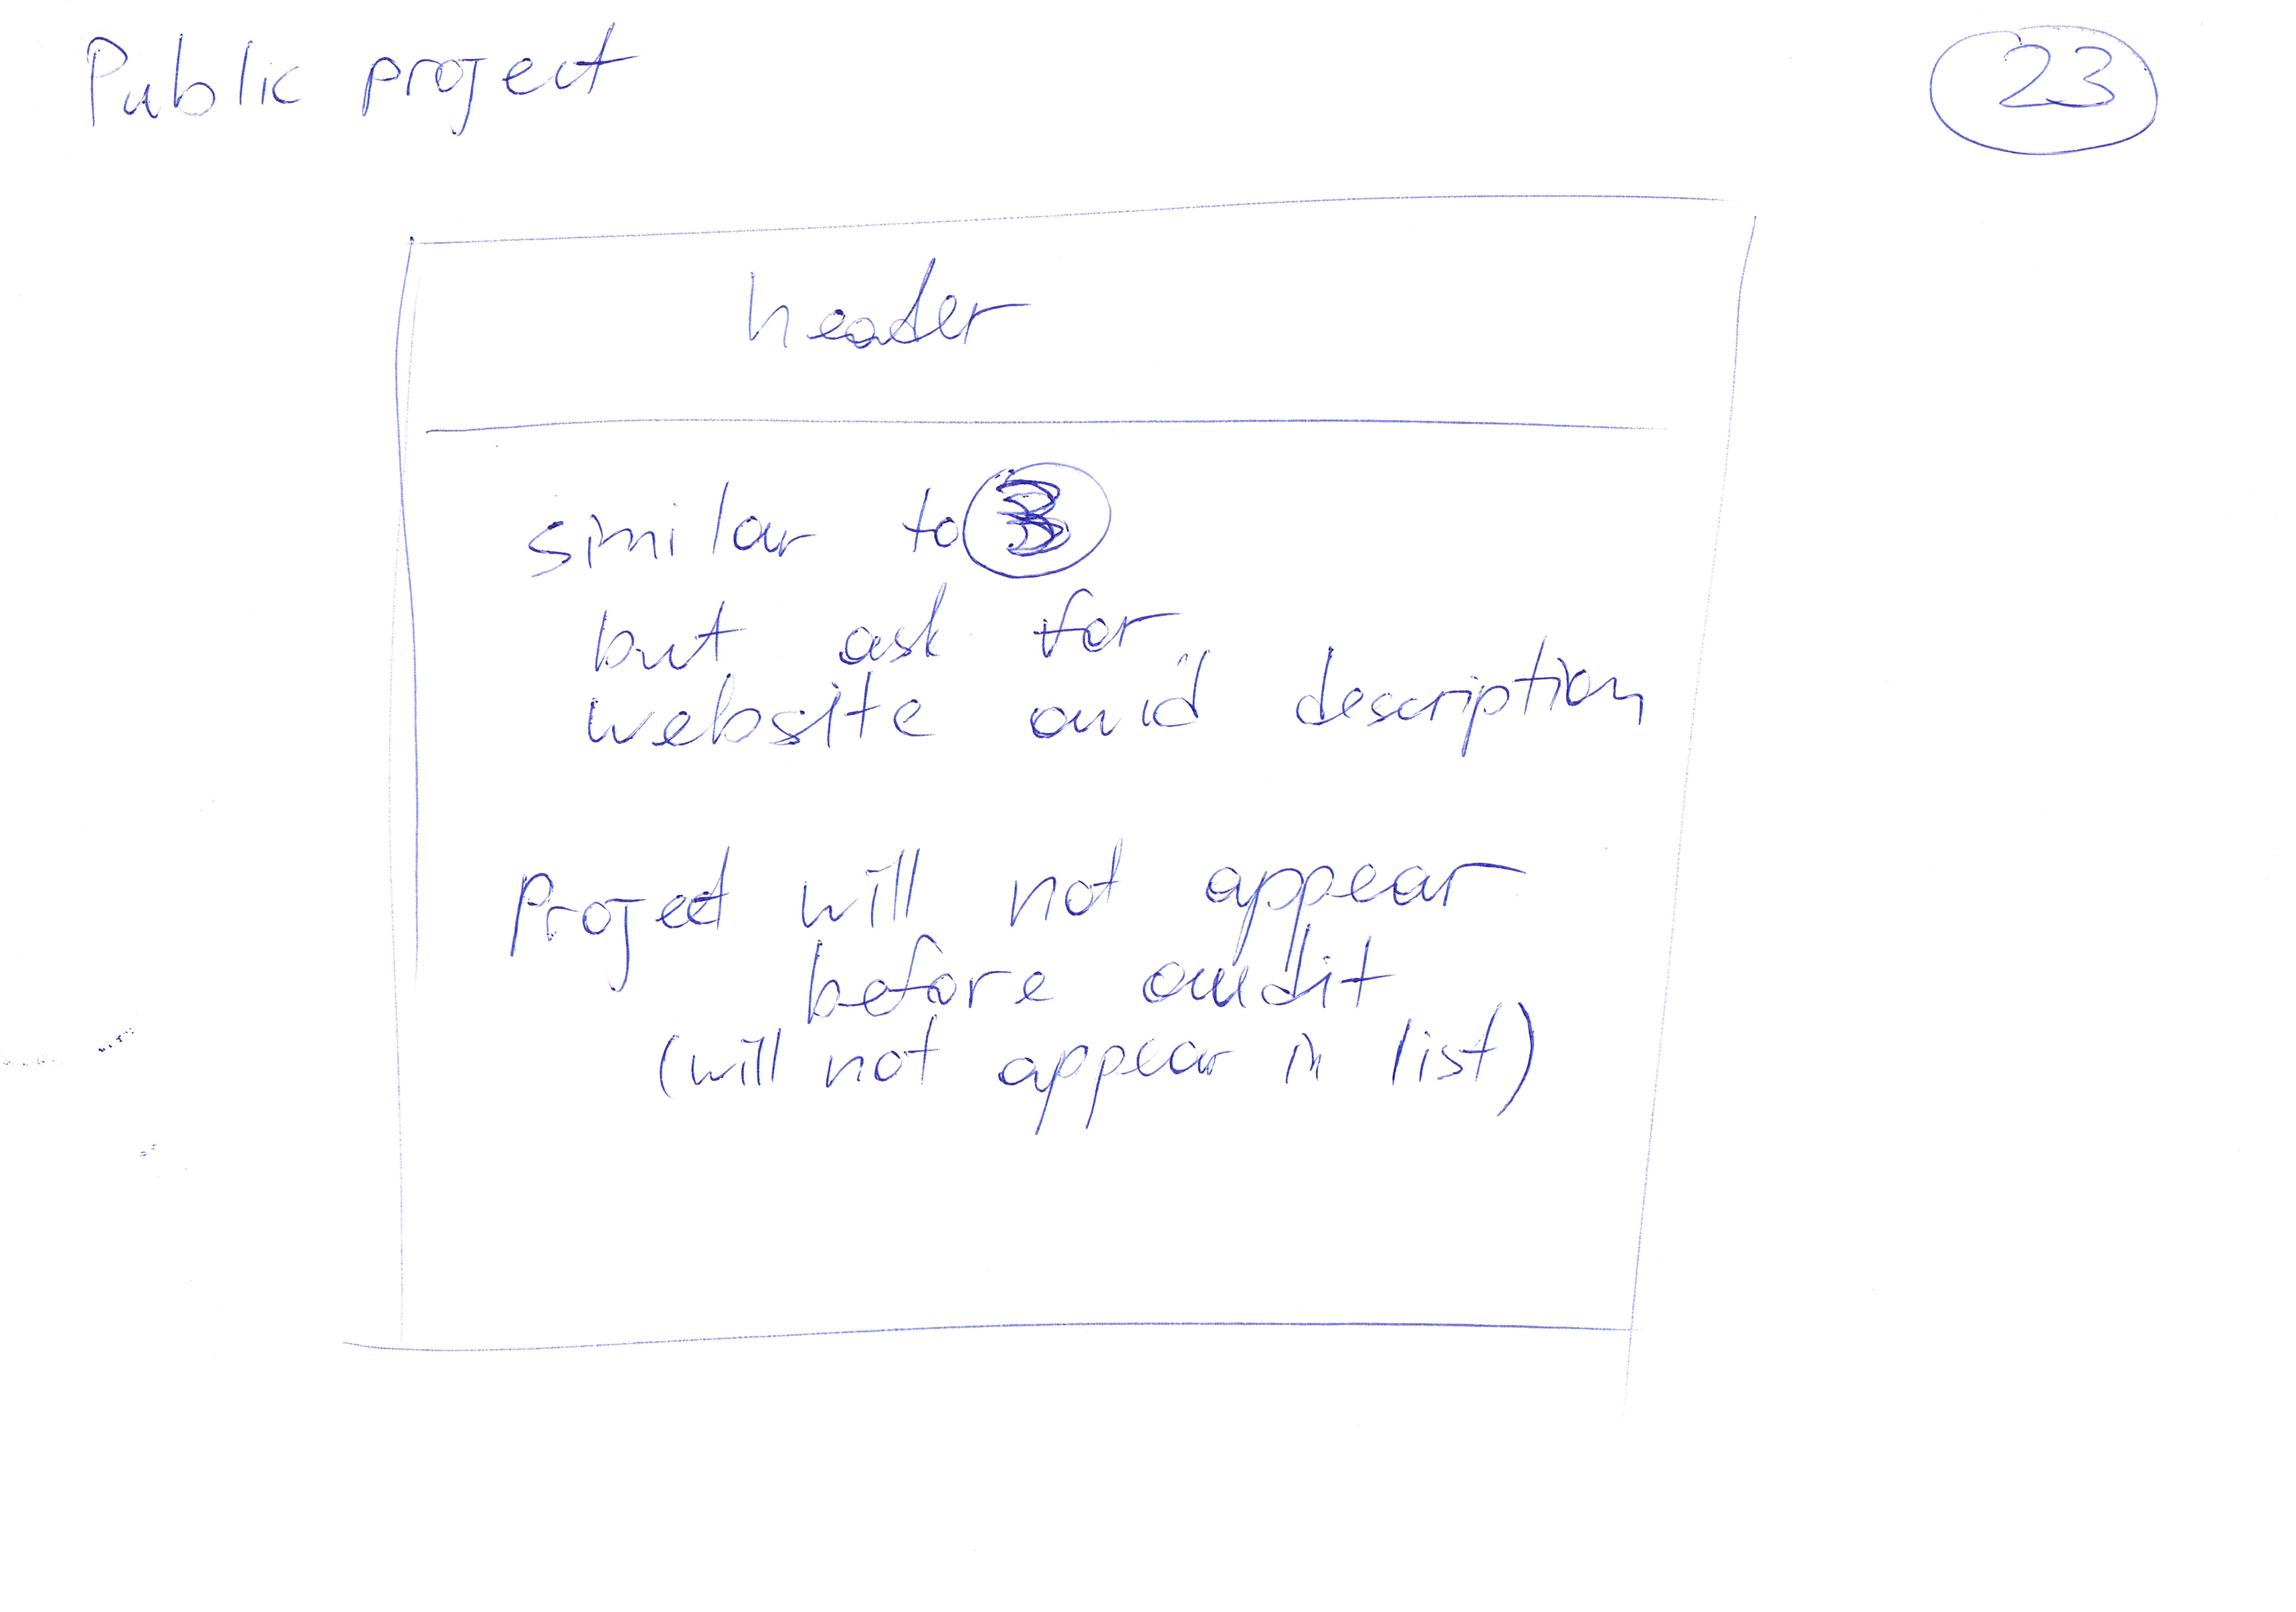 Public project
23
header
similar to
but ask for
website and description
Project will not appear
before audit
(will not appear in list)